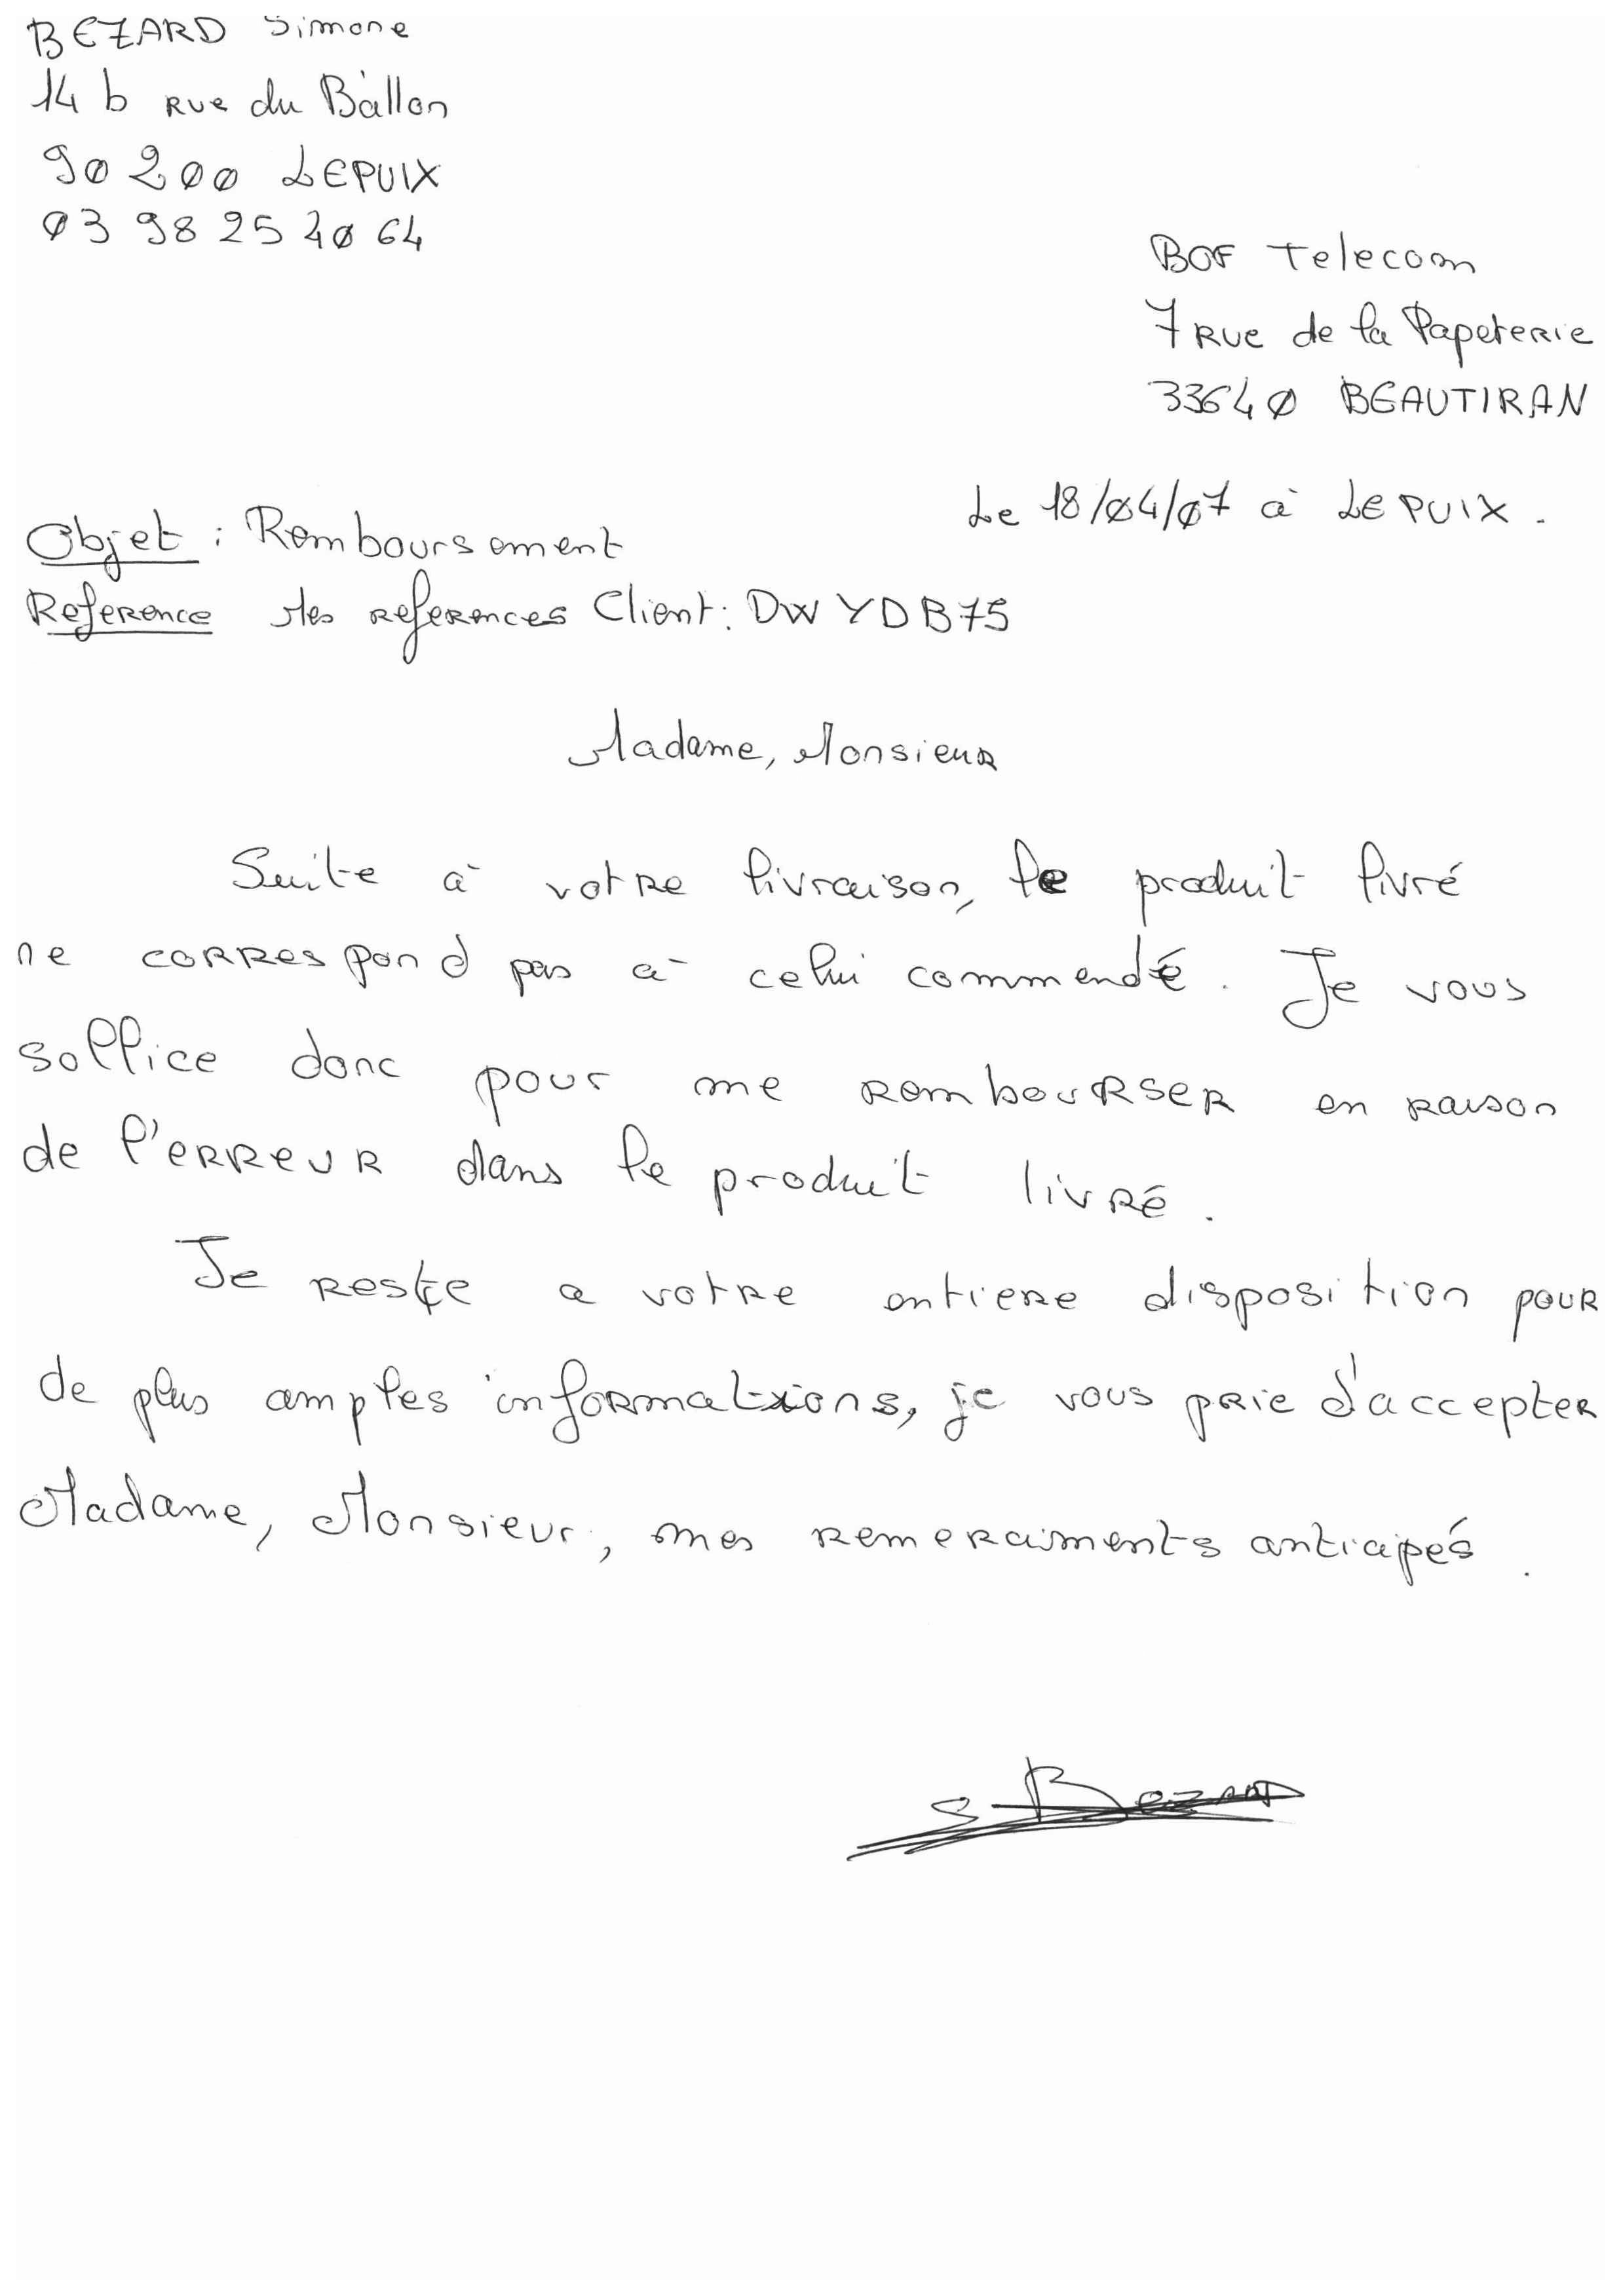 BEZARD Simone
14 b rue du Ballon
90 200 LEPUIX
03 98 25 20 64
BOF Telecom
7 Rue de la Papeterie
33640 BEAUTIRAN
Le 18/04/07 à LEPUIX.
Objet : Remboursement
Reference Mes references Client : DWYDB75
Madame, Monsieur
Suite à votre livraison, le produit livré
ne correspond pas à celui commendé. Je vous
sollice donc pour me rembourser en raison
de l'erreur dans le produit livré.
Je reste a votre entiere disposition pour
de plus amples informations, je vous prie d'accepter
Madame, Monsieur, mes remerciments anticipés.
S Bezard